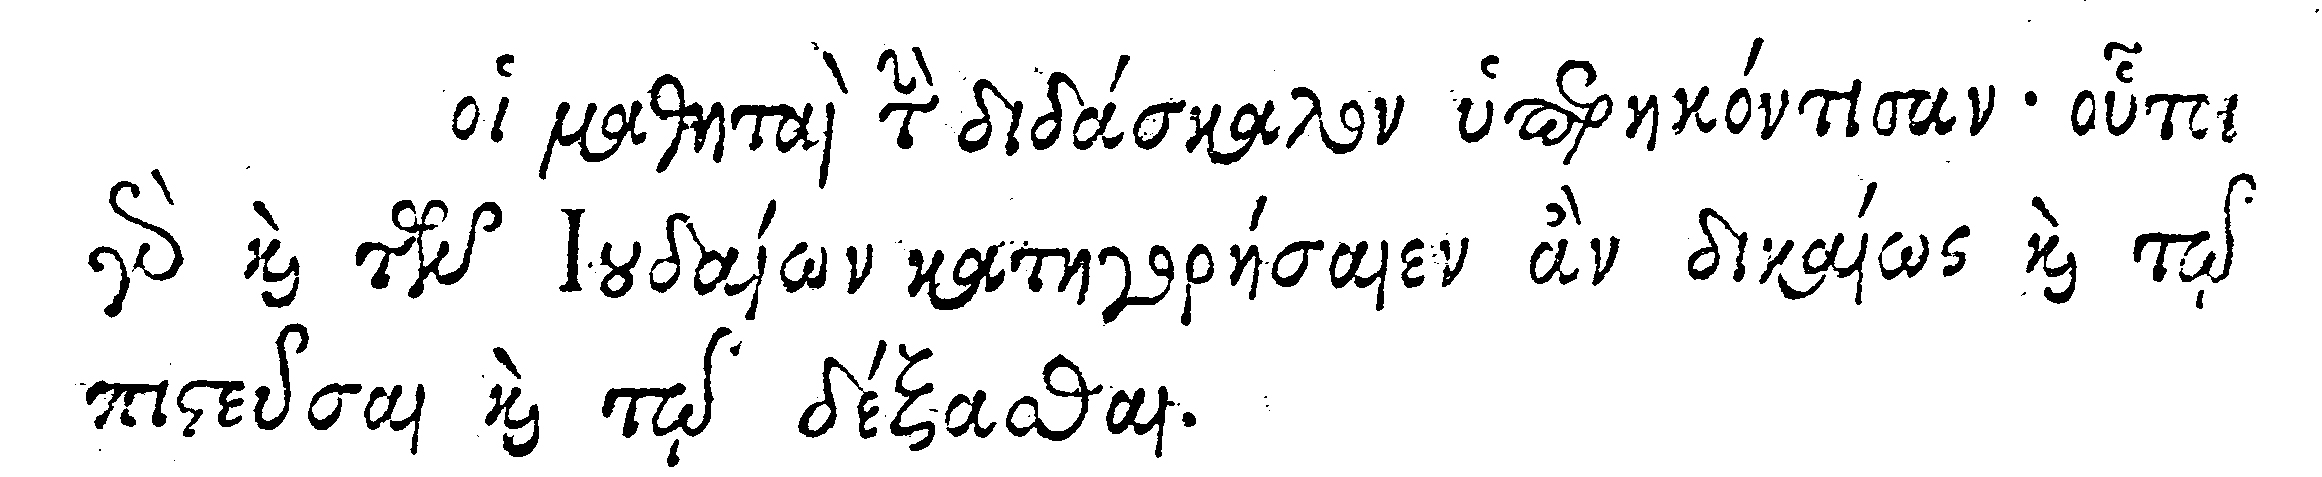 οἱ μαθηταὶ τὸν διδάσκαλον ὑπερηκόντισαν· οὗτοι
γὰρ καὶ τῶν Ιουδαίων κατηγορήσαιεν ἂν δικαίως καὶ τῷ
πιστεῦσαι καὶ τῷ δέξασθαι.